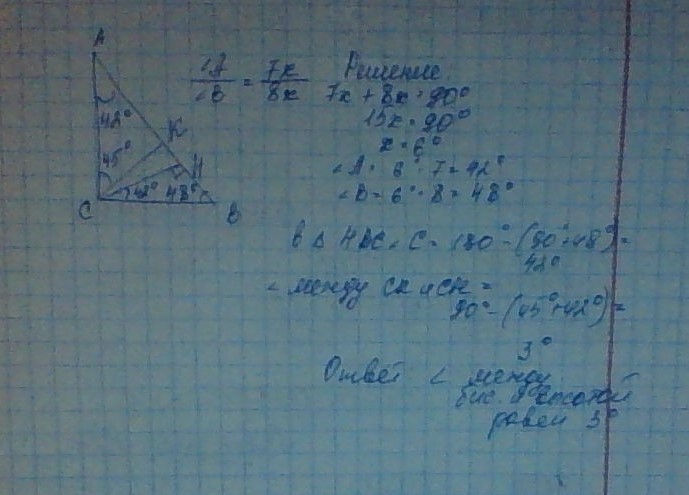 A
42°
K
45°
H
42° 48°
C
B
∠A/∠B = 7x/8x Решение
7x + 8x = 90°
15x = 90°
x = 6°
∠A = 6° · 7 = 42°
∠B = 6° · 8 = 48°
В Δ HBC ∠C = 180° - (90° + 48°) =
42°
∠ между CK и CH =
90° - (45° + 42°) =
3°
Ответ ∠ между
бис. и высотой
равен 3°